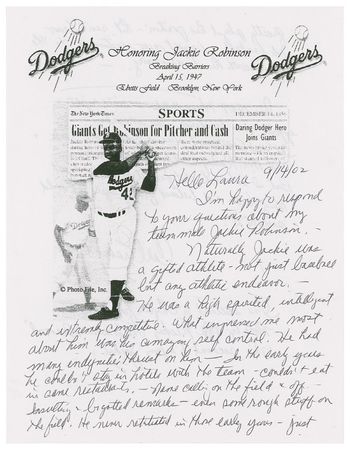 Dodgers
Honoring Jackie Robinson
Breaking Barriers
April 15, 1947
Ebbets Field Brooklyn New York
Dodgers
The New York Times
SPORTS
DECEMBER 14, 1956
Giants Get Robinson for Pitcher and Cash
Daring Dodger Hero
Joins Giants
Dodgers
42
© Photo File, Inc.
Hello Laura 9/14/02
I'm happy to respond
to your questions about my
teammate Jackie Robinson. -
Naturally Jackie was
a gifted athlete - not just baseball
but any athletic endeavor. -
He was a high spirited, intelligent
and extremely competitive. What impressed me most
about him was his amazing self control. He had
many indignities thrust on him - In the early years
he couldn't stay in hotels with the team - couldn't eat
in some restaurants. - Name calling on the field & off -
Insulting & bigoted remarks - even some rough stuff on
the field. He never retaliated in those early years - just